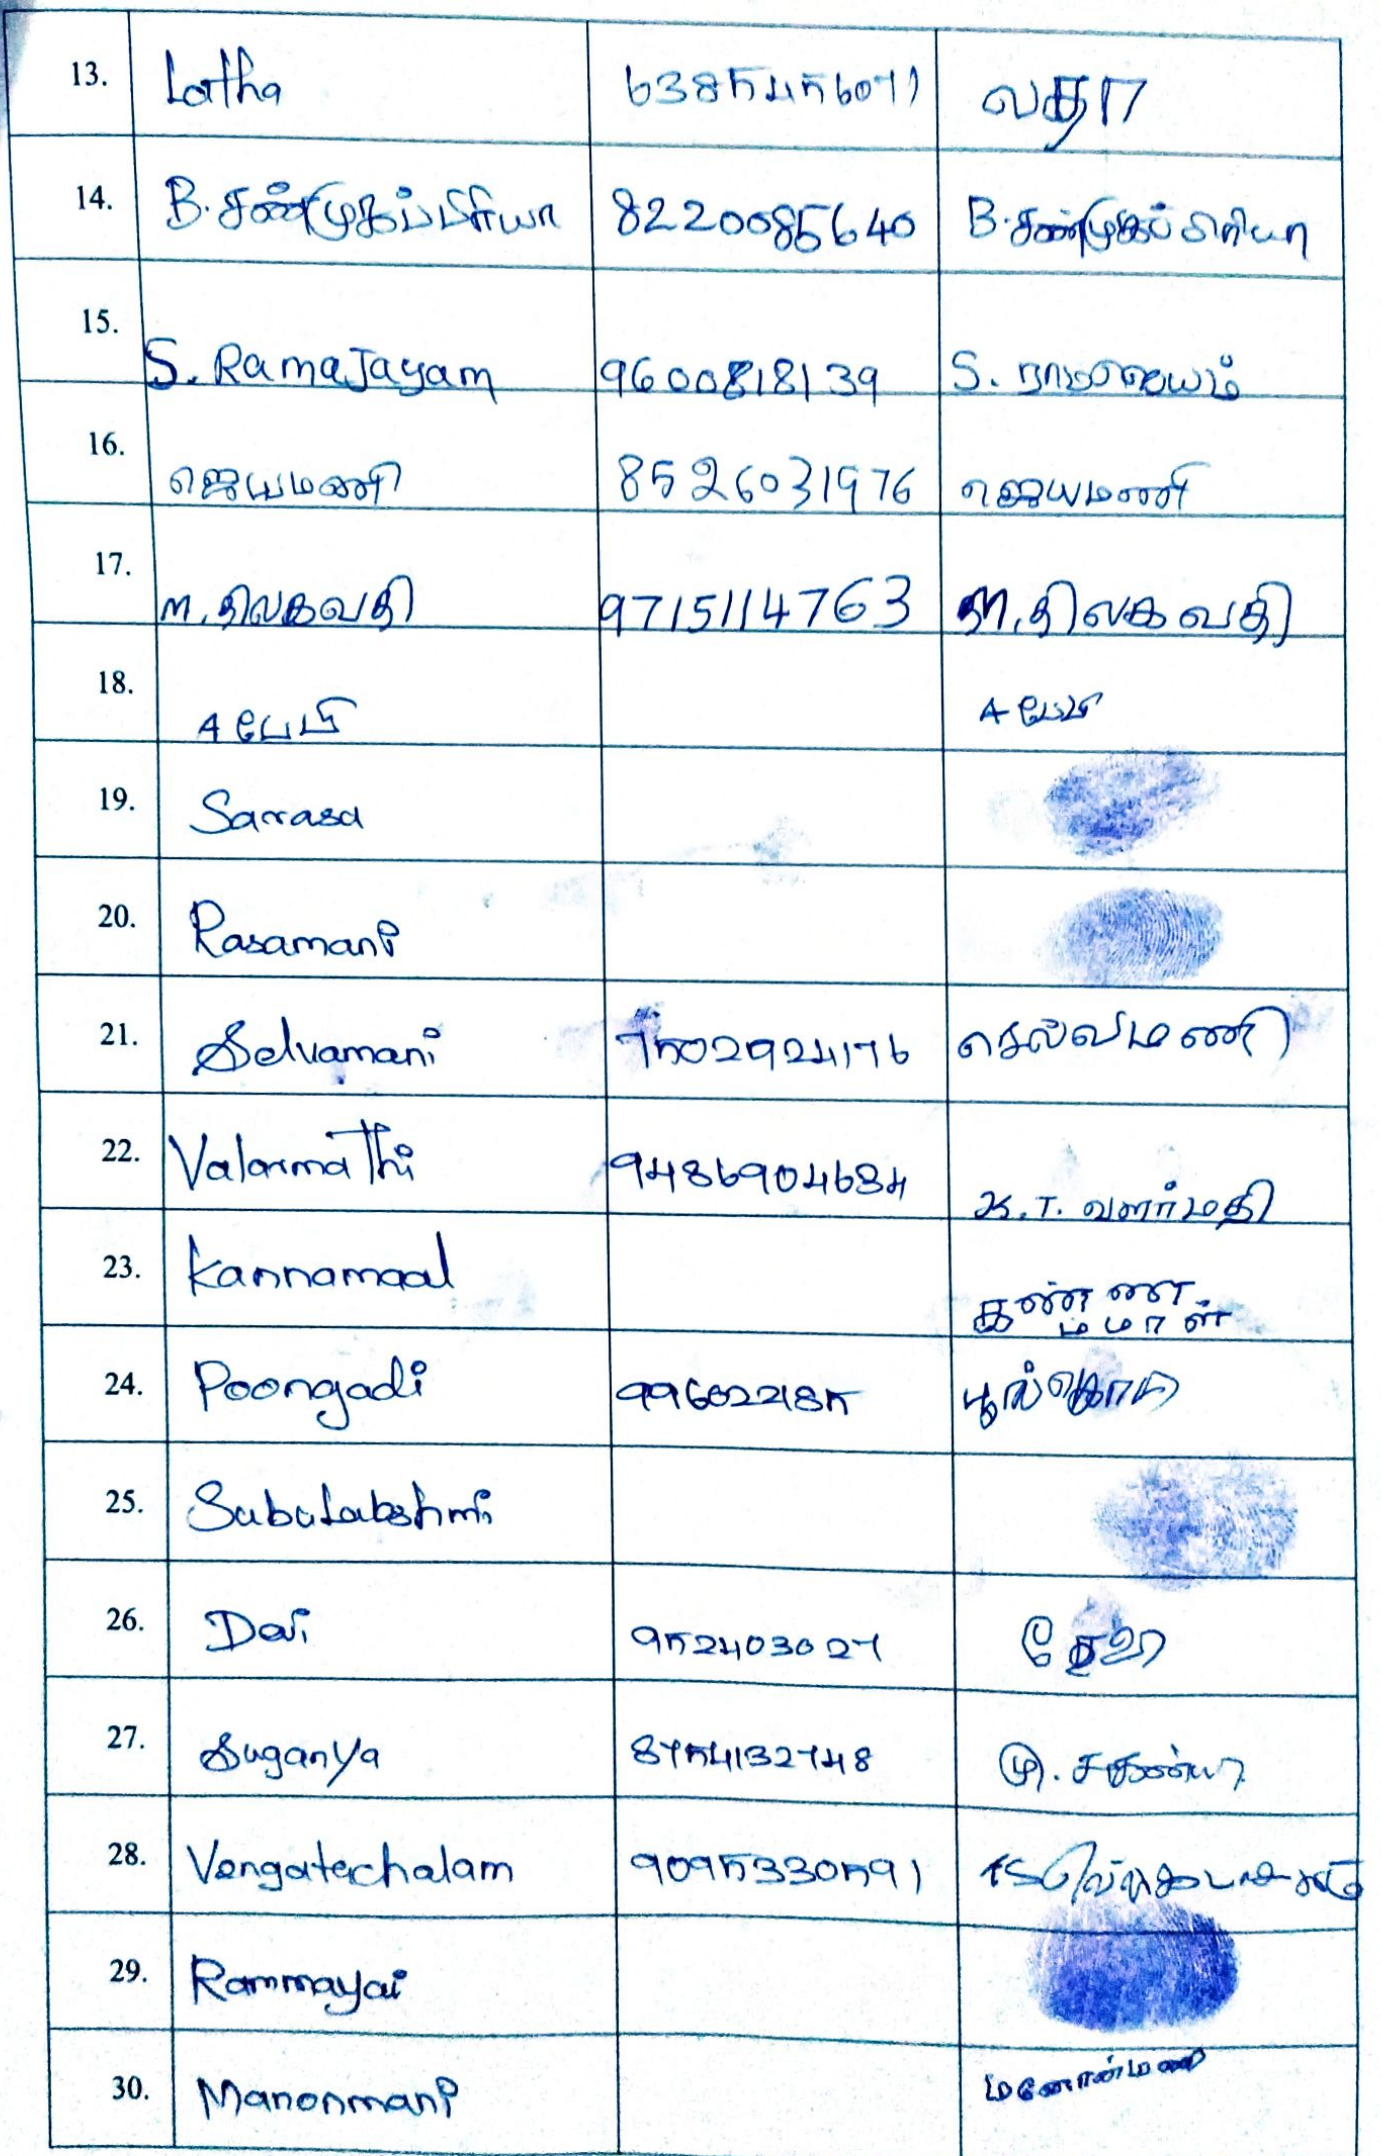 13. Latha 6385456071 லதா
14. B. சண்முகப்பிரியா 8220085640 B. சண்முகப்பிரியா
15. S. Ramajayam 9600818139 S. ராமஜெயம்
16. ஜெயமணி 8526031976 ஜெயமணி
17. M. திலகவதி 9715114763 M. திலகவதி
18. A பேபி A பேபி
19. Sarasa
20. Rasamani
21. Selvamani 7502924176 செல்வமணி
22. Valarmathi 9486904684 K.T. வளர்மதி
23. Kannamaal கண்ண
ம்மாள்
24. Poongadi 996022185
25. Subulakshmi
26. Devi 952403027 தேவி
27. Suganya 8754132748 மு. சுகன்யா
28. Vengatachalam 9095330591
29. Rammayai
30. Manonmani மனோன்மணி